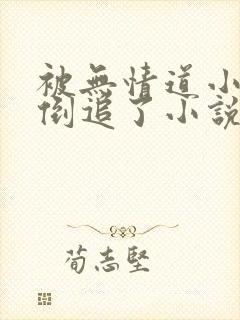 被無情道小
倒追了小說
荀志堅